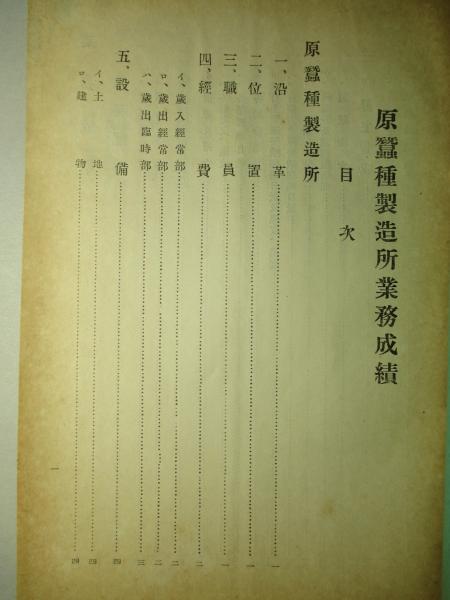 原蠶種製造所業務成績
目次
原蠶種製造所
一、沿革……一
二、位置……一
三、職員……一
四、經費……二
イ、歲入經常部……二
ロ、歲出經常部……二
ハ、歲出臨時部……三
五、設備……四
イ、土地……四
ロ、建物……四
一